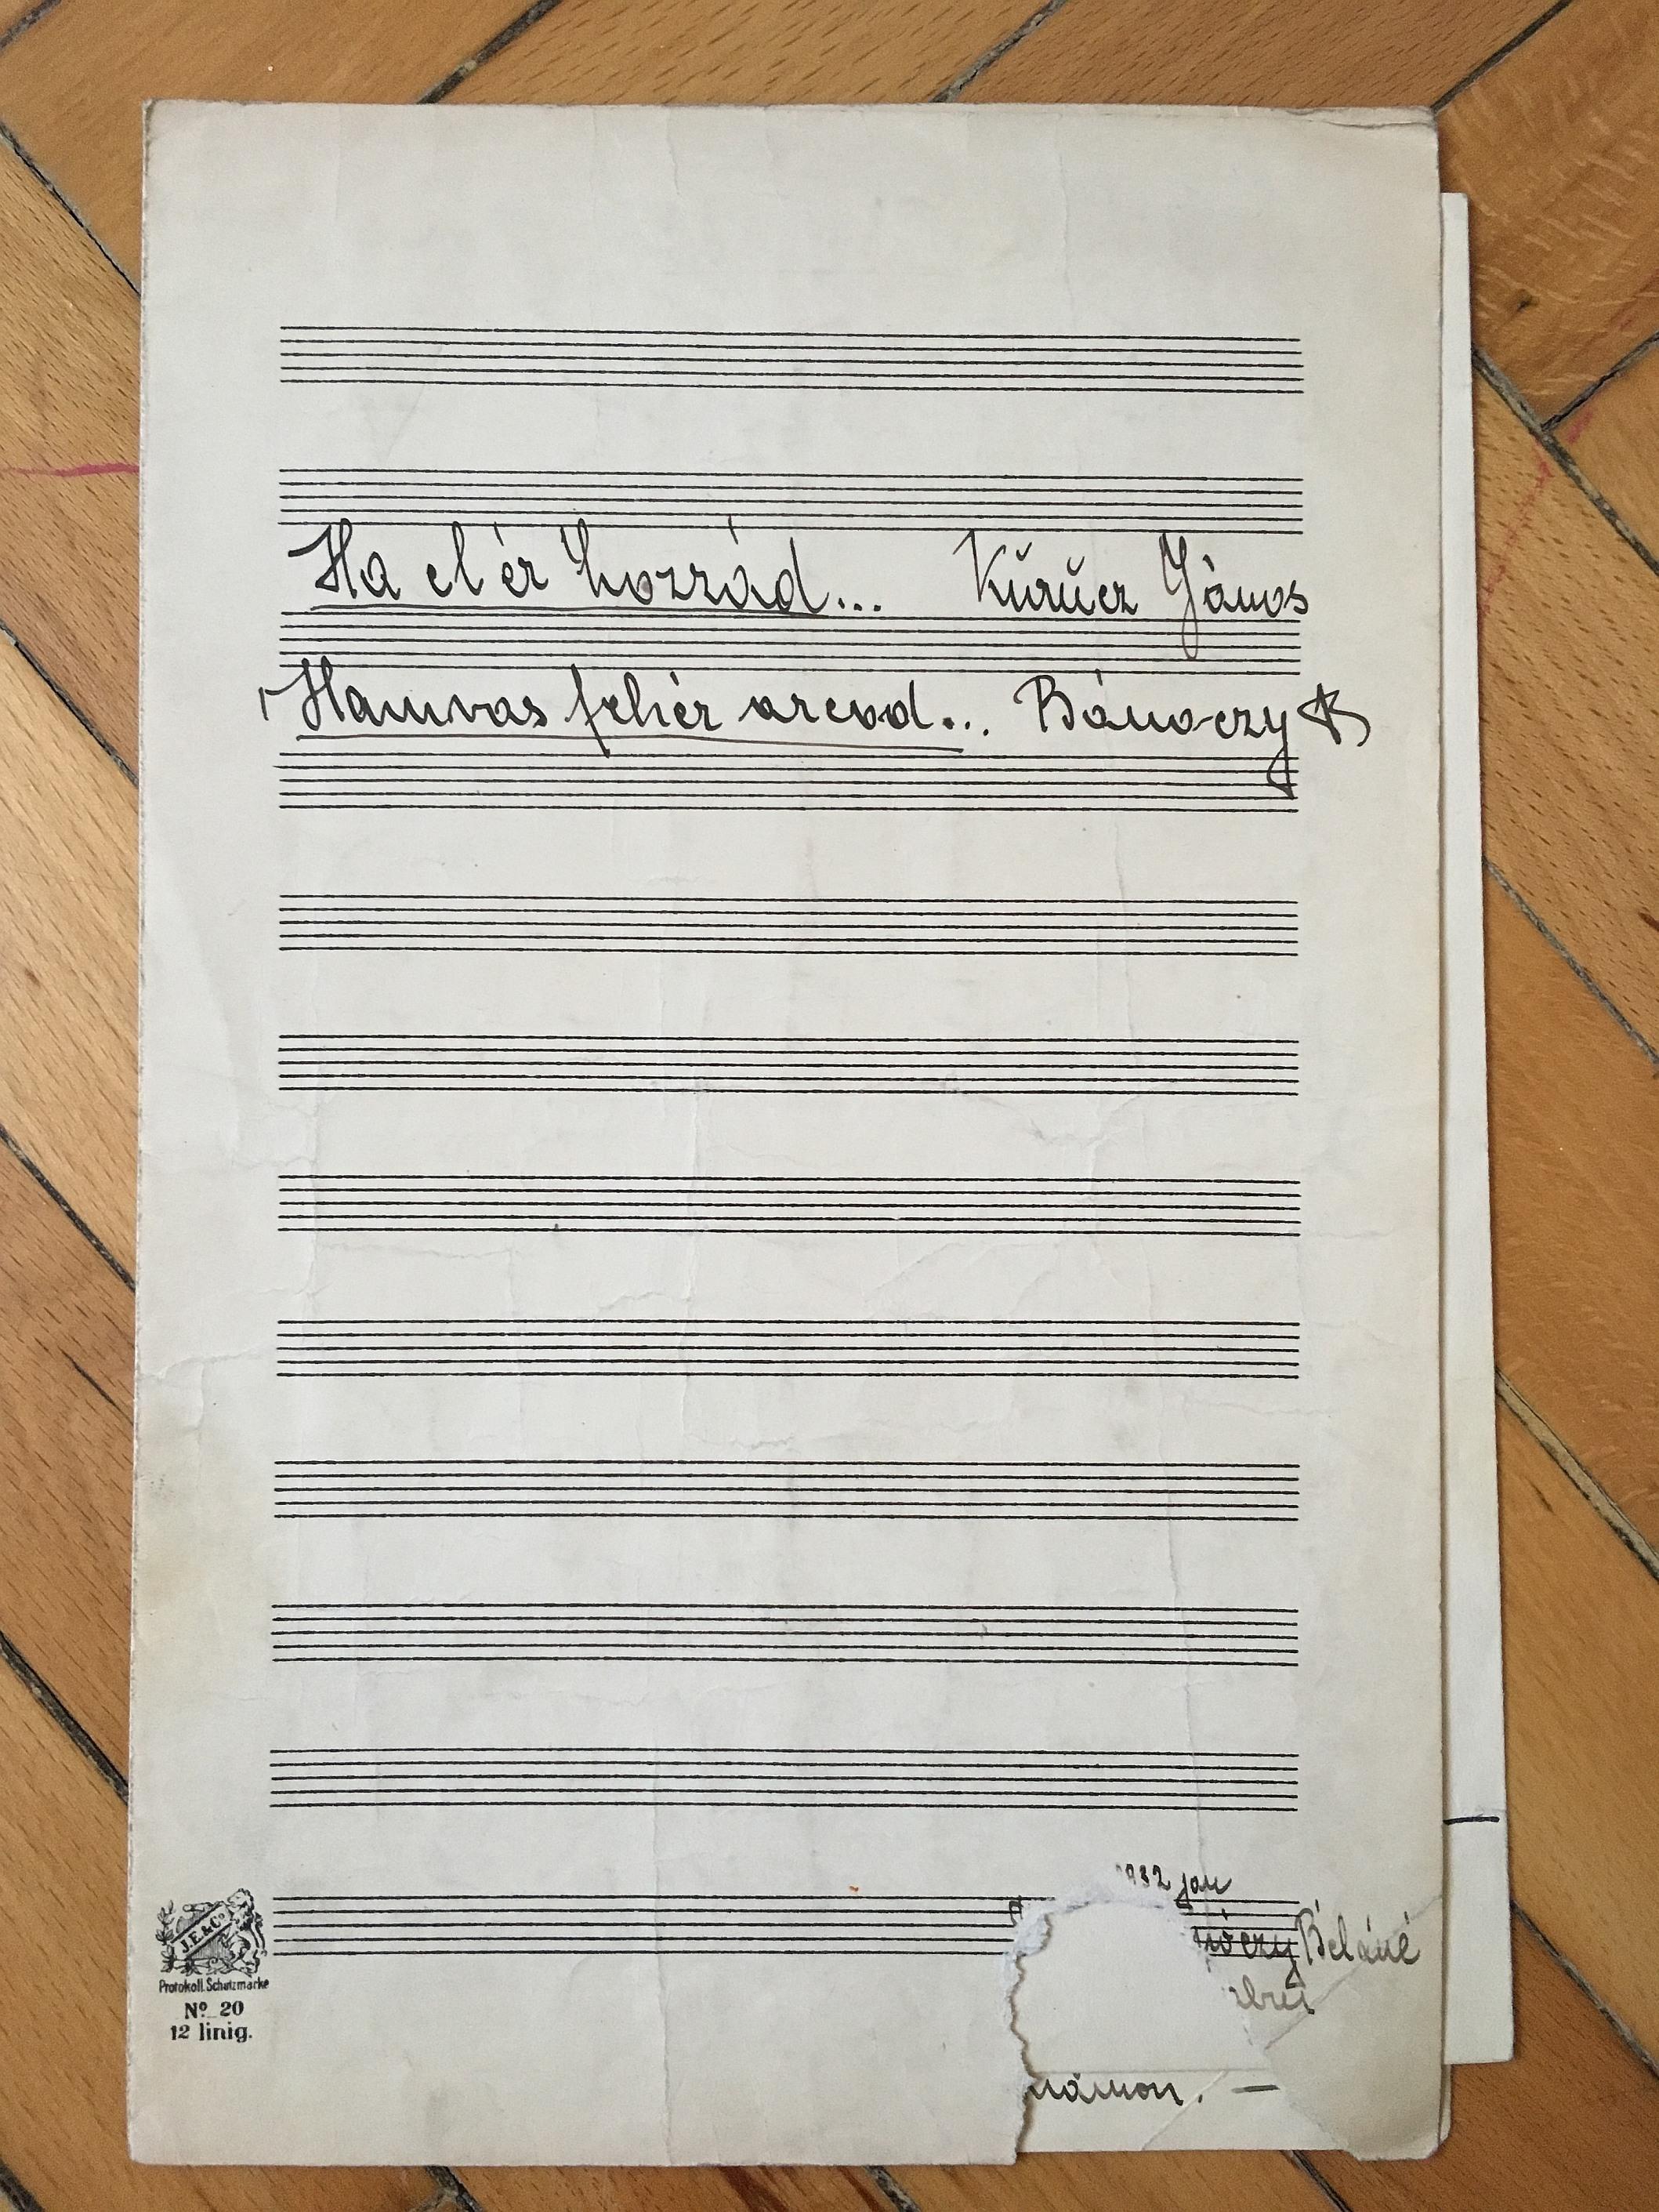 Ha el ér hozzád... Kŭrŭcz János
Hamvas fehér arcod... Bánóczy B
932 jan
nóczy Béláné
J.E. & Co.
Protokoll. Schutzmarke
No. 20
12 linig.
mámon. —